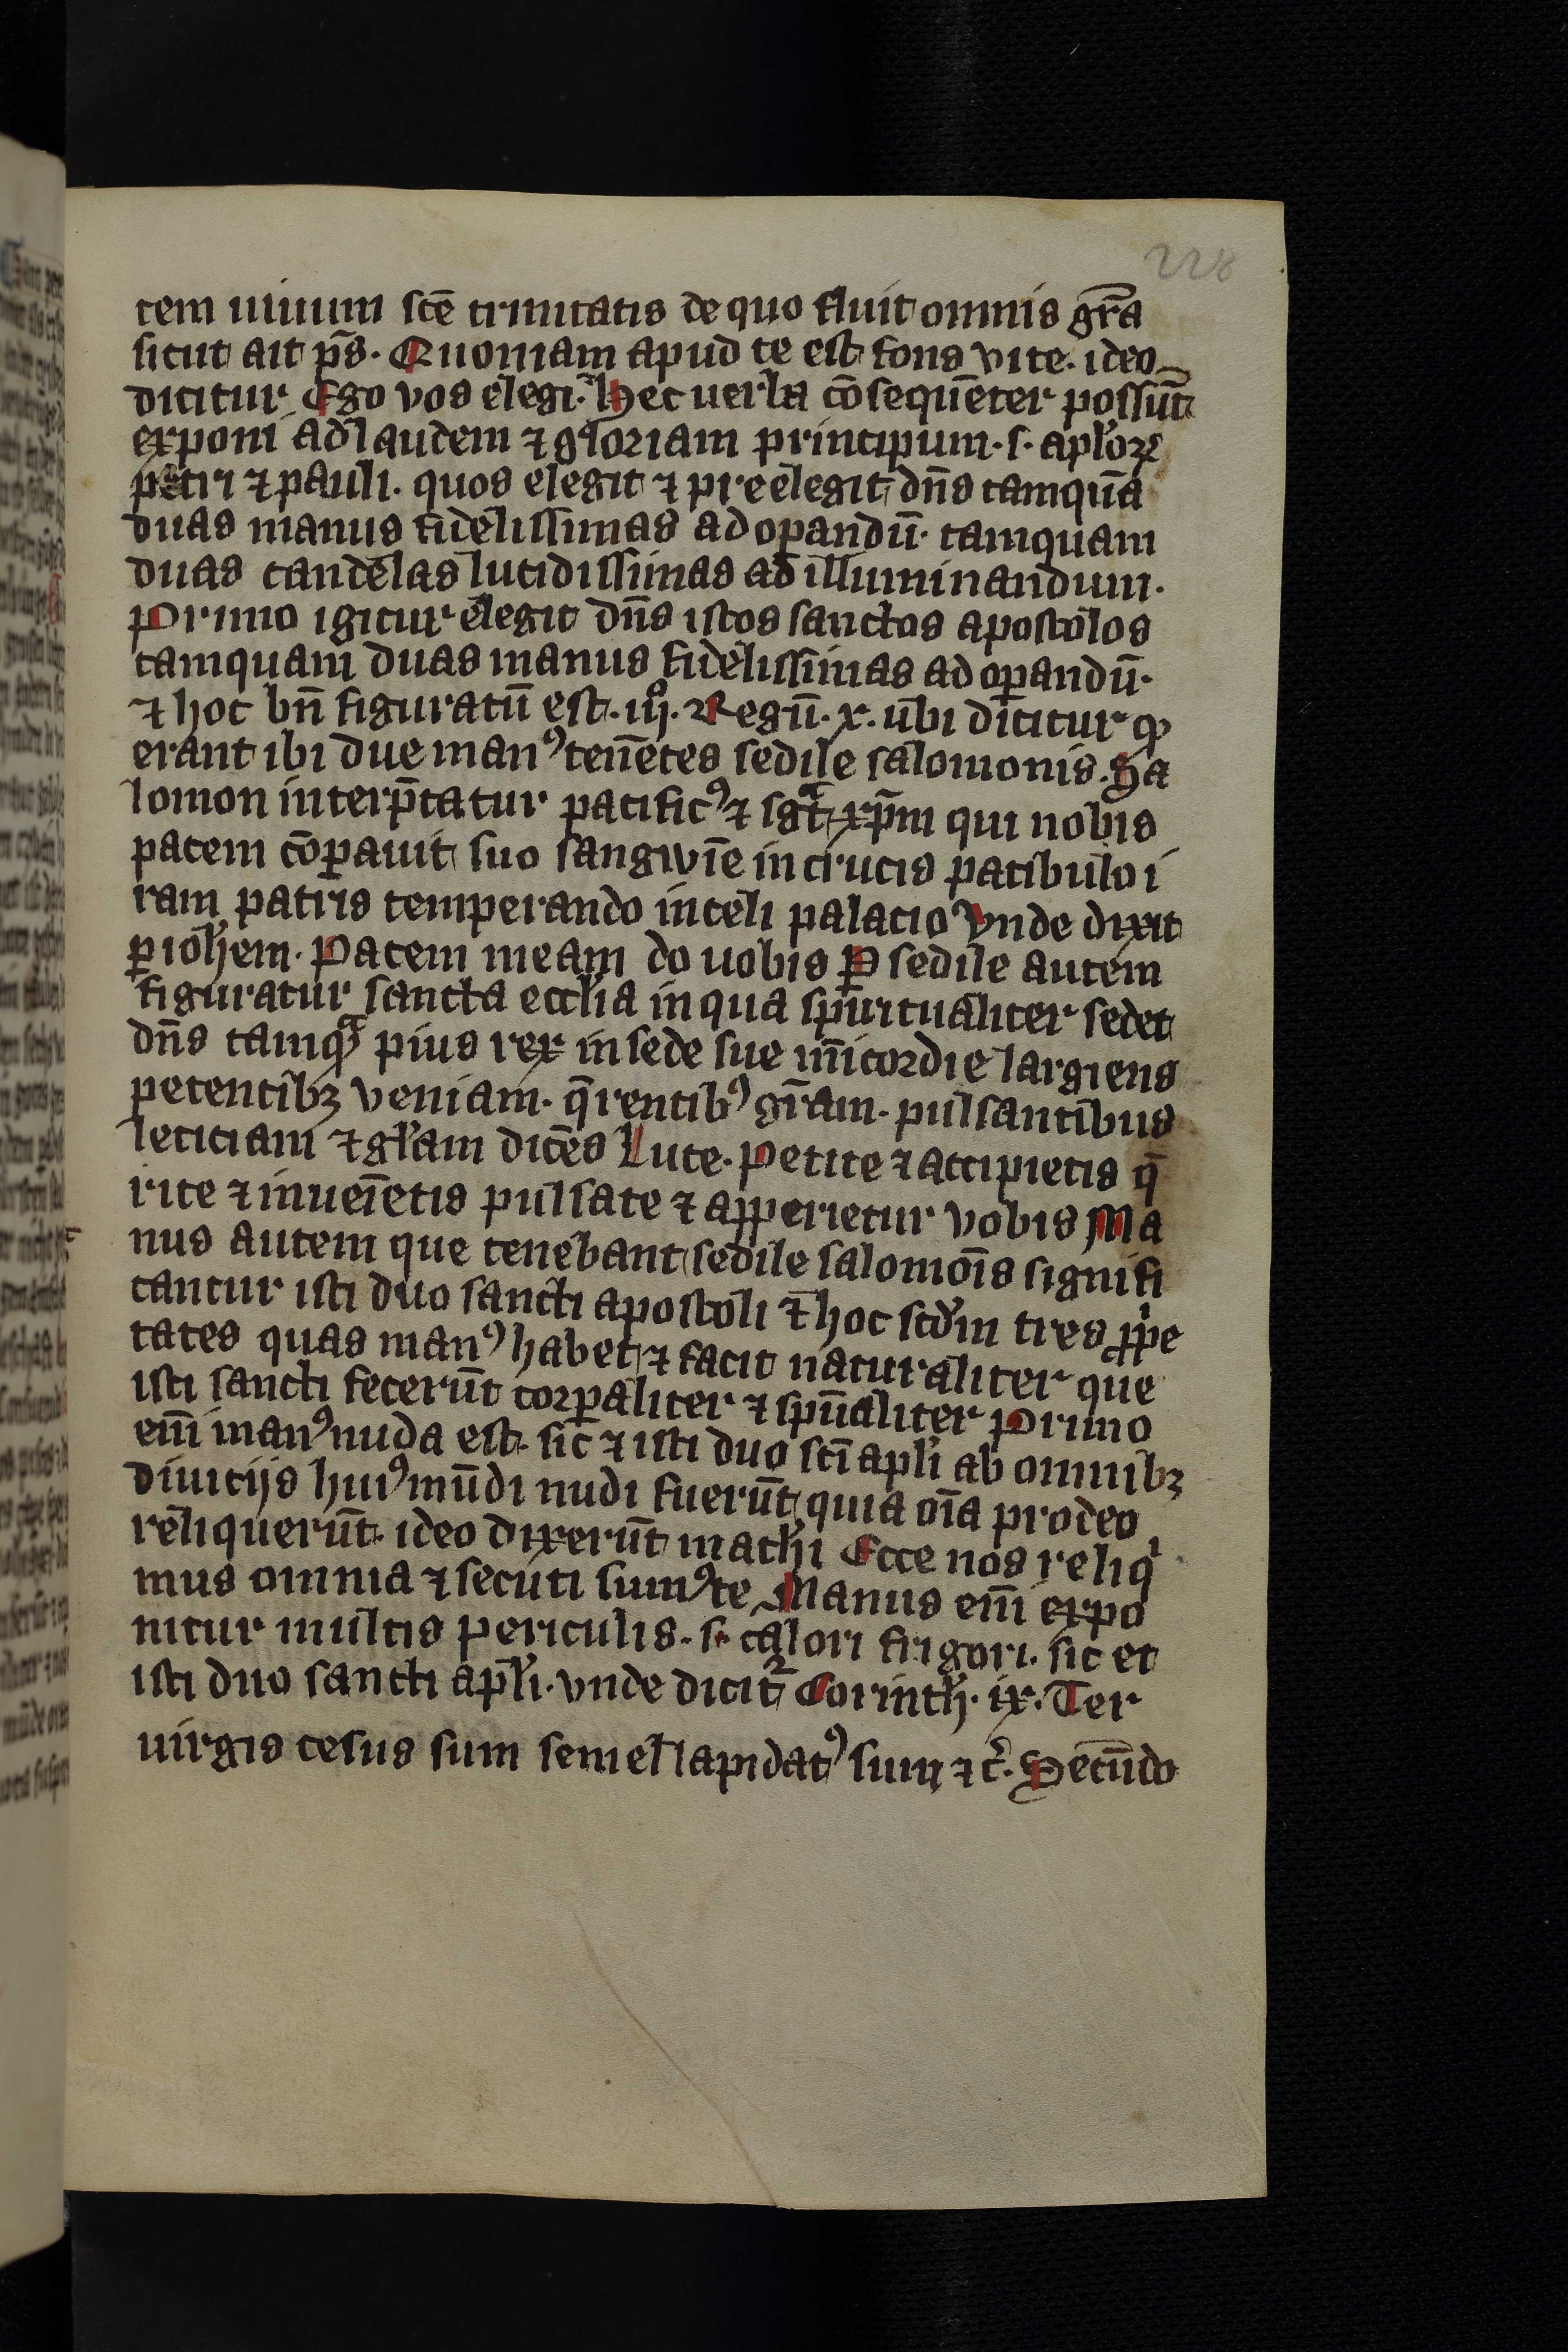 228
tem uiuum scē trinitatis de quo fluit omnis gr̄a
sicut ait p̄s. Quoniam apud te est fons vite. ideo
dicitur Ego vos elegi. Hec uerba cōsequēter possūt
exponi ad laudem ⁊ gloriam principum .s. apl̓oꝝ
petri ⁊ pauli. quos elegit ⁊ preelegit dn̄s tamquā
duas manus fidelissimas ad oꝑandū. tamquam
duas candelas lucidissimas ad illuminandum.
Primo igitur elegit dn̄s istos sanctos apostolos
tamquam duas manus fidelissimas ad oꝑandū.
⁊ hoc bn̄ figuratū est .iijͦ. Regū. x. ubi dicitur ꝙ
erant ibi due manꝰ tenētes sedile salomonis. Sa
lomon interp̄tatur pacificꝰ ⁊ sg̅t xp̄m qui nobis
pacem cōꝑauit suo sangwīe in crucis patibulo i
ram patris temperando in celi palacio Vnde dixit
ꝑ ioh̄em. Pacem meam do uobis Ꝑ sedile autem
figuratur sancta eccl̓ia in qua spiritualiter sedet
dn̄s tamqᷓ pius rex in sede sue mīcordie largiens
petentibꝫ veniam. q̄rentibꝰ gr̄am. pulsantibus
leticiam ⁊ gl̓am dicēs Luce. Petite ⁊ accipietis q̄
rite ⁊ inueīetis pulsate ⁊ apperietur vobis Ma
nus autem que tenebant sedile salomōis signifi
cantur isti duo sancti apostoli ⁊ hoc scd̓m tres ꝓpe
tates quas manꝰ habet ⁊ facit naturaliter que
isti sancti fecerūt corꝑaliter ⁊ spūaliter Primo
eni̅ manꝰ nuda est. sic ⁊ isti duo sc̄i apl̓i ab omnibꝫ
diuicijs huiꝰ mūdi nudi fuerūt quia oīa pro deo
reliquerūt. ideo dixerūt math̓i Ecce nos reliqͥ
mus omnia ⁊ secuti sumꝰ te Manus eni̅ expo
nitur multis periculis .s. calori frigori. sic et
isti duo sancti apl̓i. vnde dicit᷑ Corinth̓. ix. Ter
uirgis cesus sum semel lapidatꝰ sum ⁊c̓. Secūdo